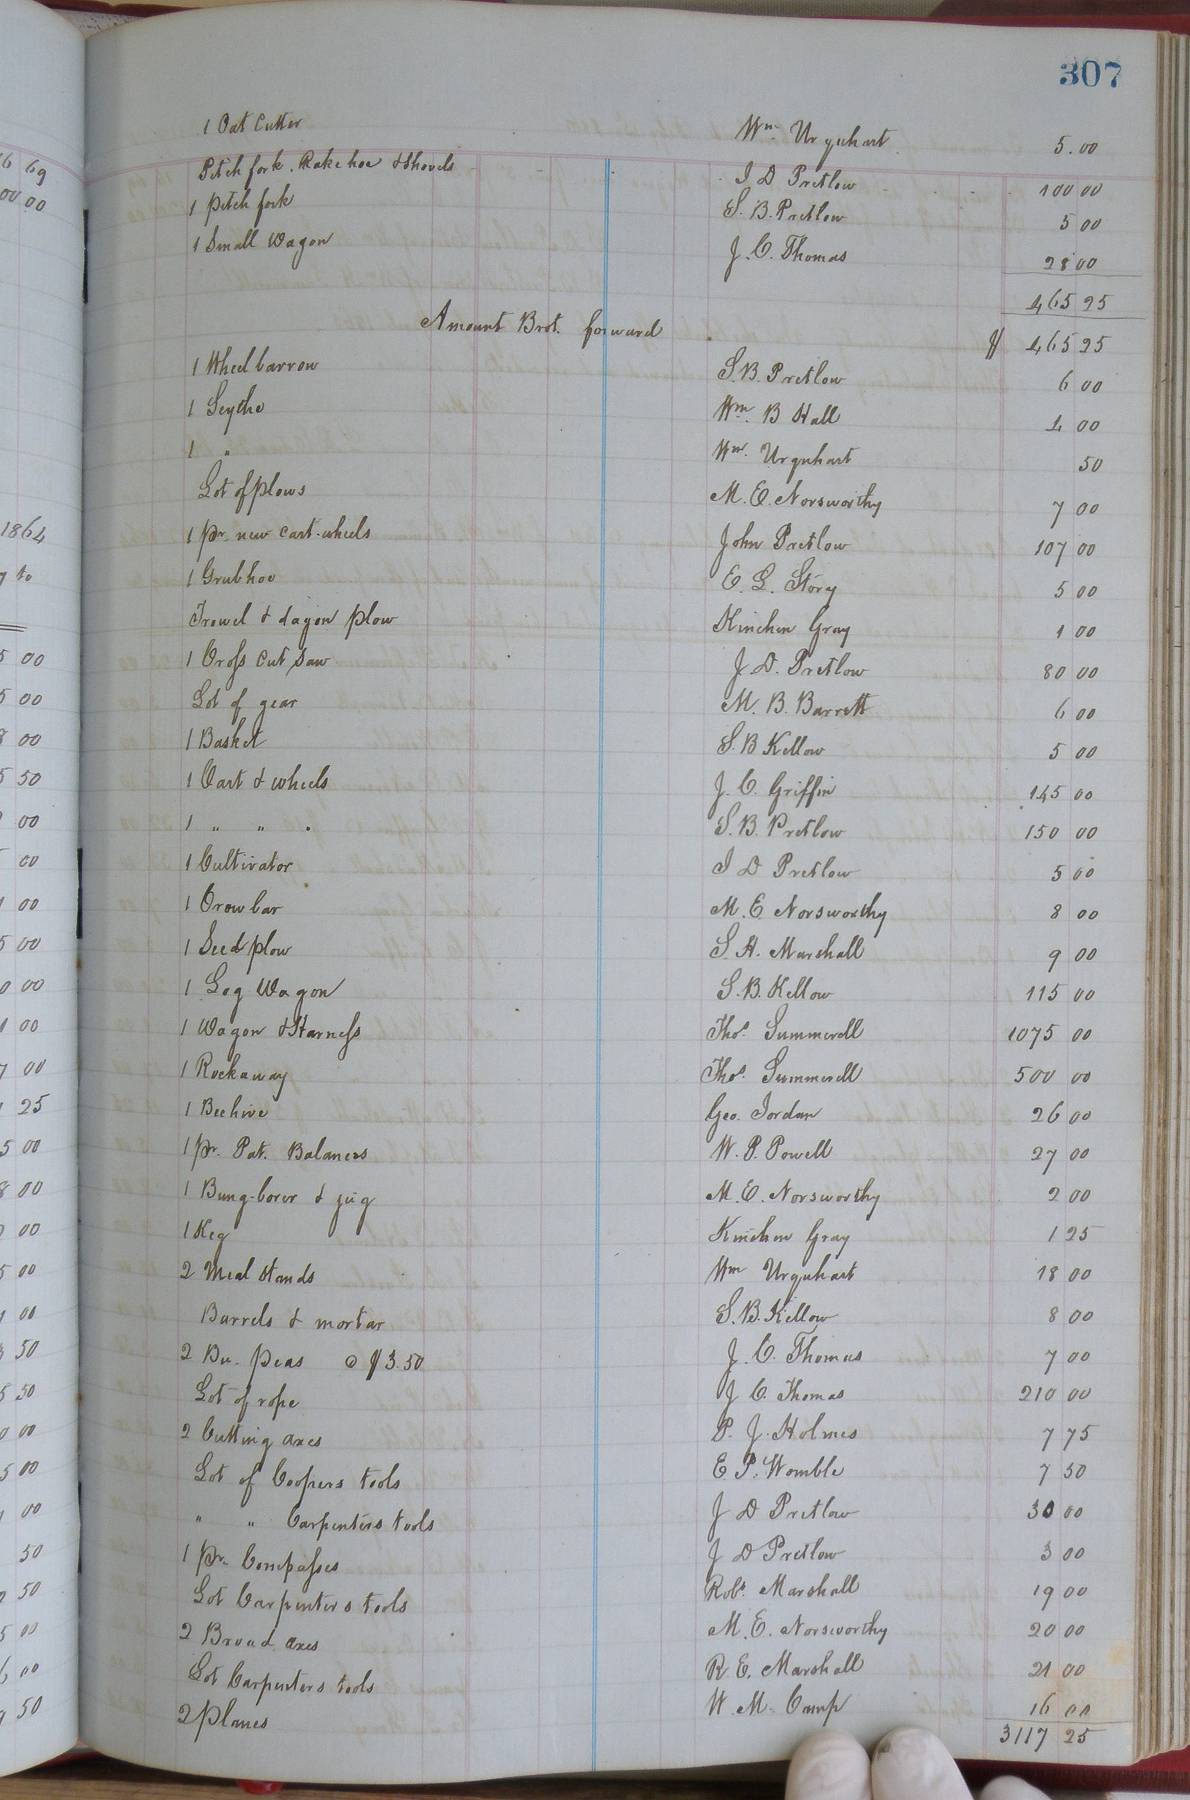 307
1 Oat Cutter Wm Urquhart 5.00
Pitch fork, Rake hoe & Shovels J D Pretlow 100 00
1 pitch fork S. B. Pretlow 5 00
1 Small Wagon J. C. Thomas 28 00
465 25
Amount Brot. forward $ 465 25
1 Wheel barrow S. B. Pretlow 6 00
1 Scythe Wm. B Hall 4 00
1 " Wm. Urquhart 50
Lot of plows M. E. Norsworthy 7 00
1 pr. new cart-wheels John Pretlow 107 00
1 Grubhoe E. L. Story 5 00
Trowel & dagon plow Kinchen Gray 1 00
1 Cross cut Saw J. D. Pretlow 80 00
Lot of gear M. B. Barrett 6 00
1 Basket S. B Kellow 5 00
1 Cart & wheels J. C. Griffin 145 00
1 " " " S. B. Pretlow 150 00
1 Cultivator J D Pretlow 5 00
1 Crow bar M. E. Norsworthy 8 00
1 Seed plow S. H. Marshall 9 00
1 Log Wagon S. B. Kellow 115 00
1 Wagon & Harness Thos. Summerell 1075 00
1 Rockaway Thos. Summerell 500 00
1 Beehive Geo. Jordan 26 00
1 pr. Pat. Balances W. P. Powell 27 00
1 Bung-borer & jug M. E. Norsworthy 2 00
1 Keg Kinchen Gray 1 25
2 Meal stands Wm Urquhart 18 00
Barrels & mortar S. B. Kellow 8 00
2 Bu. peas @ $3.50 J. C. Thomas 7 00
Lot of rope J C. Thomas 210 00
2 Cutting axes P. J. Holmes 7 75
Lot of Coopers tools E. P. Womble 7 50
" " Carpenters tools J D Pretlow 30 00
1 pr. Compasses J D Pretlow 3 00
Lot Carpenters tools Robt. Marshall 19 00
2 Broad axes M. E. Norsworthy 20 00
Lot Carpenters tools R. E. Marshall 21 00
2 planes W. M. Camp 16 00
3117 25
69
00 00
1864
to
5 00
5 00
8 00
5 50
00
00
00
5 00
0 00
00
7 00
25
5 00
8 00
00
5 00
00
50
5 50
00
5 00
00
50
50
5 00
00
50